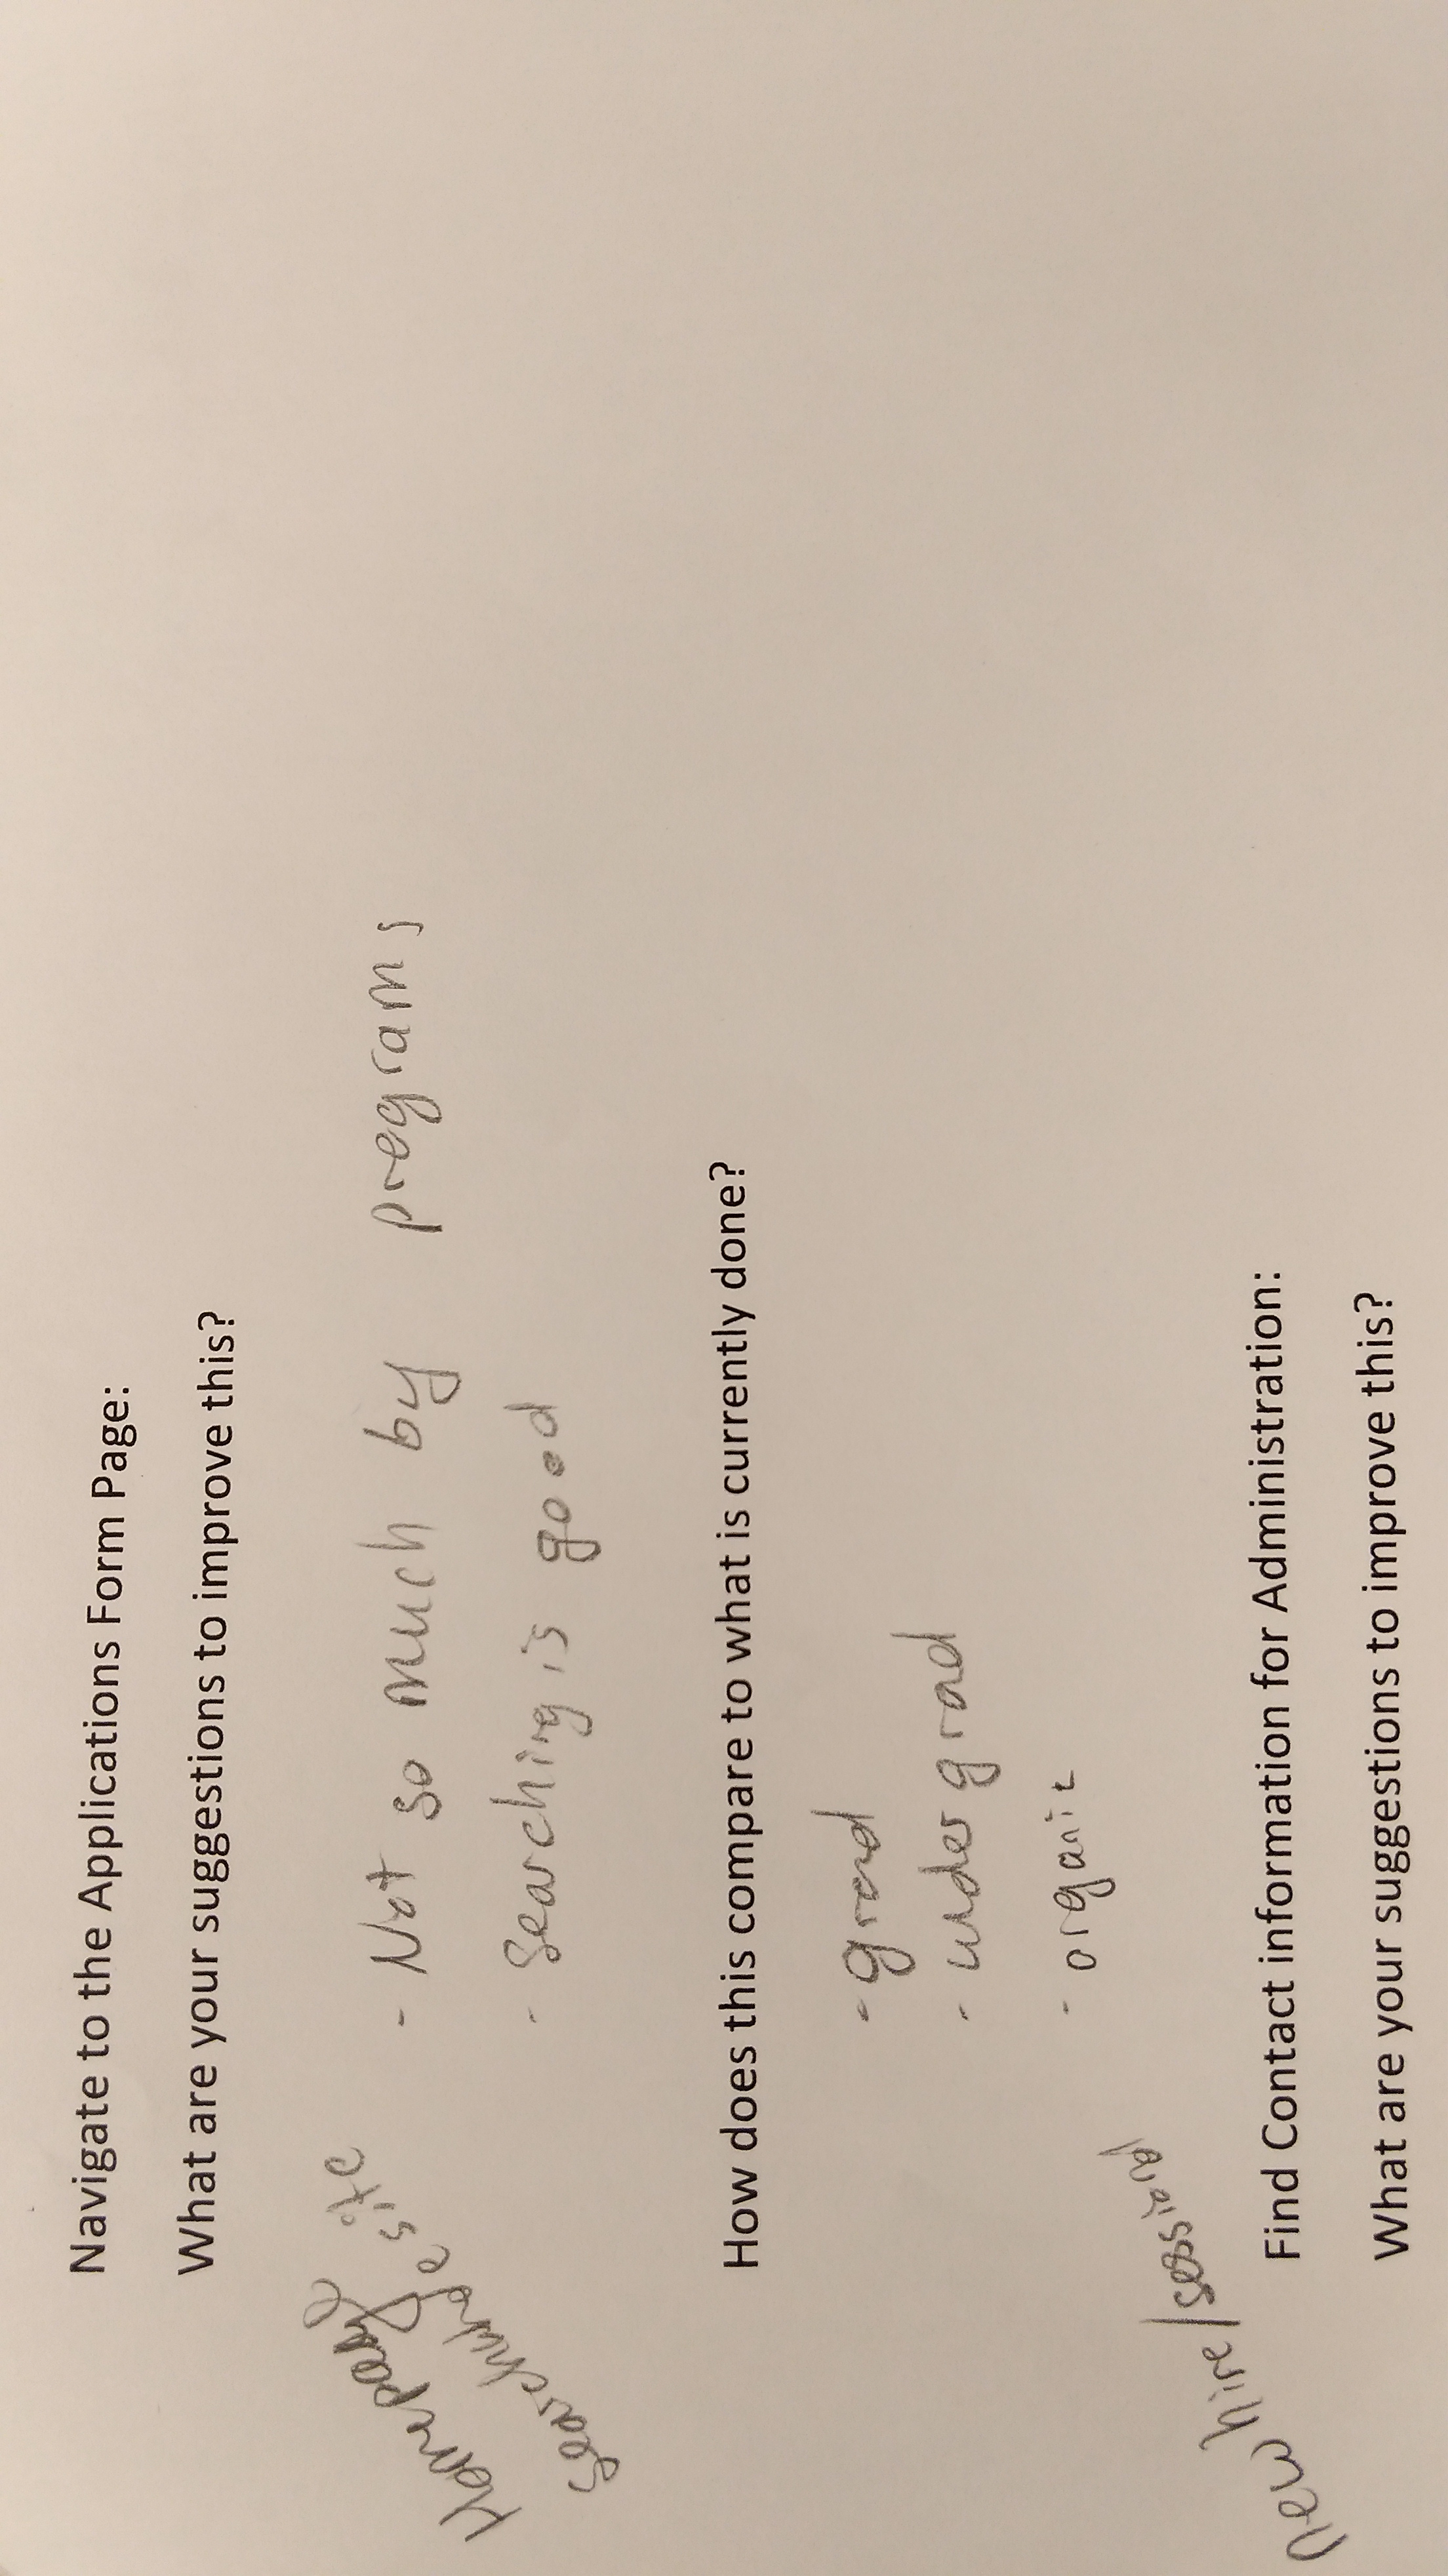 Navigate to the Applications Form Page:
What are your suggestions to improve this?
Homepage
search whole site
- Not so much by programs
- Searching is good
How does this compare to what is currently done?
- grad
- undergrad
- organic
new hire/sessional
Find Contact information for Administration:
What are your suggestions to improve this?